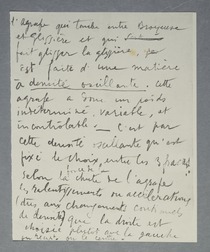 L'agrafe qui touche entre Broyeuse
et glissière et qui
fait glisser la glissière,
est faite d'une matière
à densité oscillante. Cette
agrafe a donc un poids
indéterminé, variable, et
incontrolable — C'est par
cette densité oscillante qu'est
fixé le choix, entre les 3
Selon la chute de l'agrafe
ralentissements ou accélérations
dûs, aux changements continuels
de densité que la droite est
choisie plutôt que la gauche